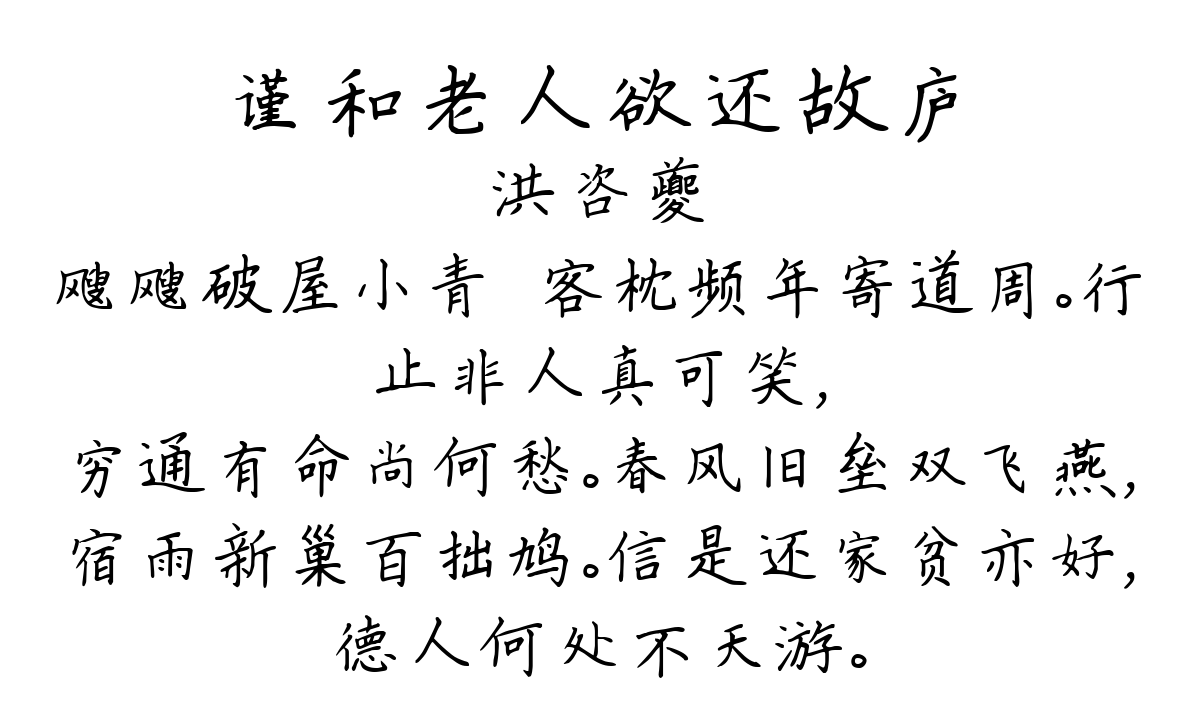 谨和老人欲还故庐
洪咨夔
飕飕破屋小青 客枕频年寄道周。行
止非人真可笑,
穷通有命尚何愁。春风旧垒双飞燕,
宿雨新巢百拙鸠。信是还家贫亦好,
德人何处不天游。